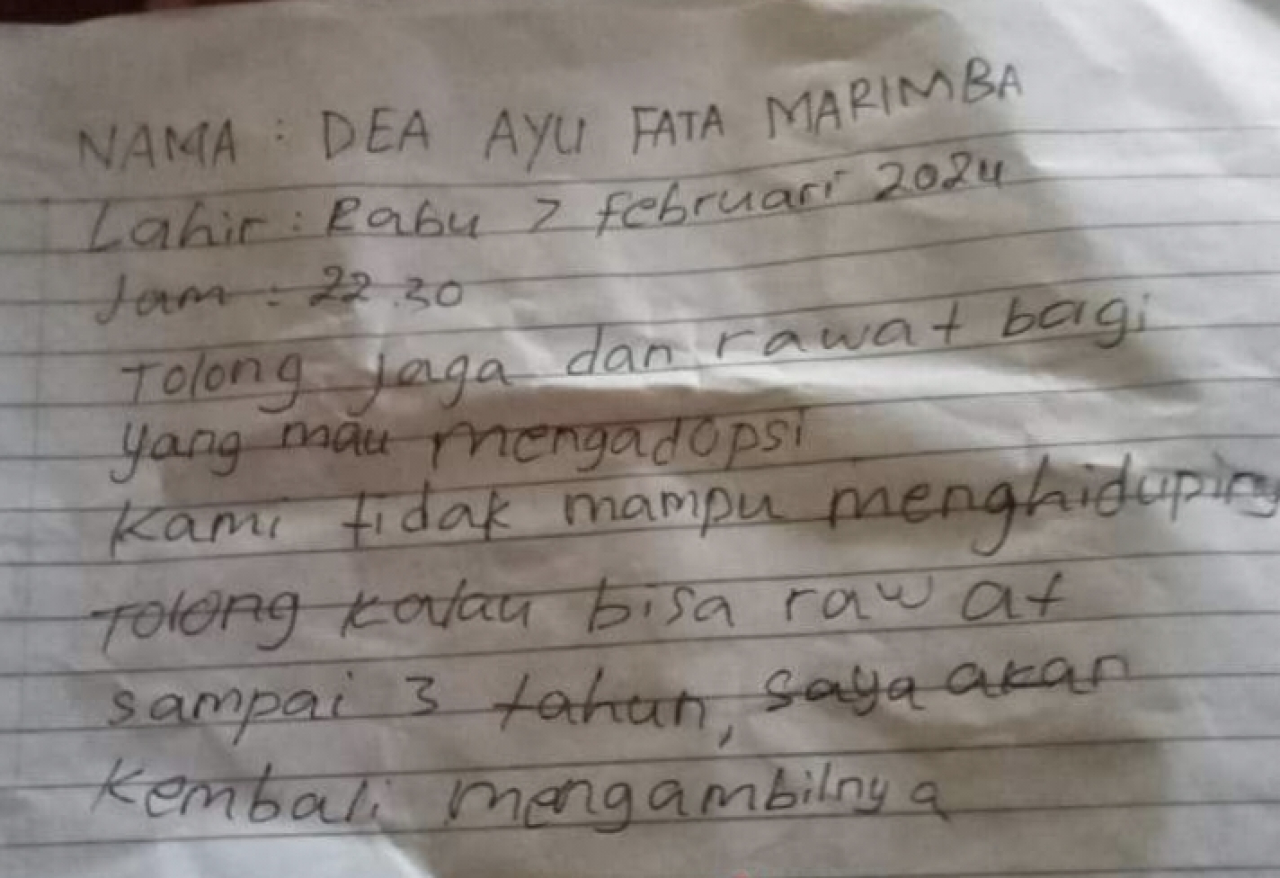 NAMA : DEA AYU FATA MARIMBA
Lahir : Rabu 7 februari 2024
Jam : 22.30
Tolong jaga dan rawat bagi
yang mau mengadopsi
Kami tidak mampu menghidupiny
Tolong kalau bisa rawat
sampai 3 tahun, saya akan
Kembali mengambilnya